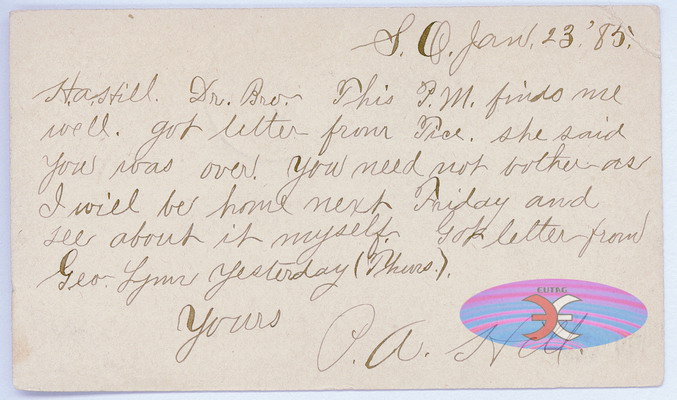 S. O. Jan. 23. '85.
H.a. Hill. Dr. Bro.- This P.M. finds me
well. got letter from Tice. she said
you was over. You need not bother as
I will be home next Friday and
see about it myself. Got letter from
Geo. Lynn yesterday (Thurs.).
Yours
P. A.
EUTAG